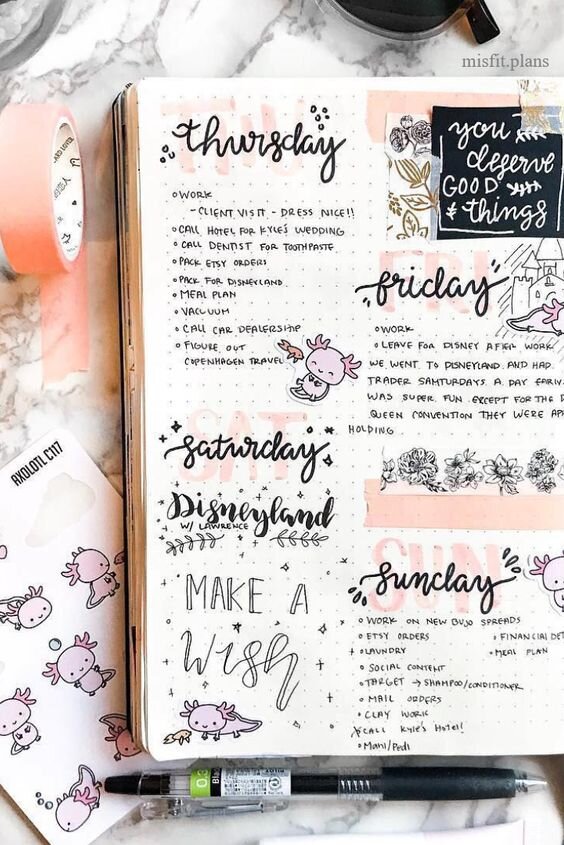 misfit.plans
THU
thursday
WORK
- CLIENT VISIT - DRESS NICE!!
CALL HOTEL FOR KYLE'S WEDDING
CALL DENTIST FOR TOOTHPASTE
PACK ETSY ORDERS
PACK FOR DISNEYLAND
MEAL PLAN
VACUUM
CALL CAR DEALERSHIP
FIGURE OUT
COPENHAGEN TRAVEL
SAT
saturday
Disneyland
W/ LAWRENCE
MAKE A
Wish
you
deserve
GOOD
& things
FRI
friday
WORK
LEAVE FOR DISNEY AFTER WORK
WE WENT TO DISNEYLAND AND HAD
TRADER SAMTURDAYS A DAY EARLY
WAS SUPER FUN EXCEPT FOR THE
QUEEN CONVENTION THEY WERE
HOLDING
SUN
sunday
WORK ON NEW BUJO SPREADS
ETSY ORDERS
FINANCIAL
LAUNDRY
MEAL PLAN
SOCIAL CONTENT
TARGET → SHAMPOO/CONDITIONER
MAIL ORDERS
CLAY WORK
CALL KYLE'S HOTEL!
Mani/Pedi
AXOLOTL C117
0.3